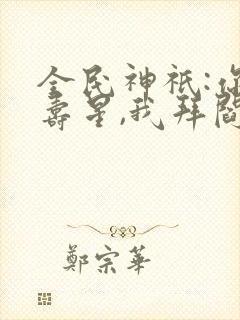 全民神祇:你
壽星,我拜閻
鄭宗華